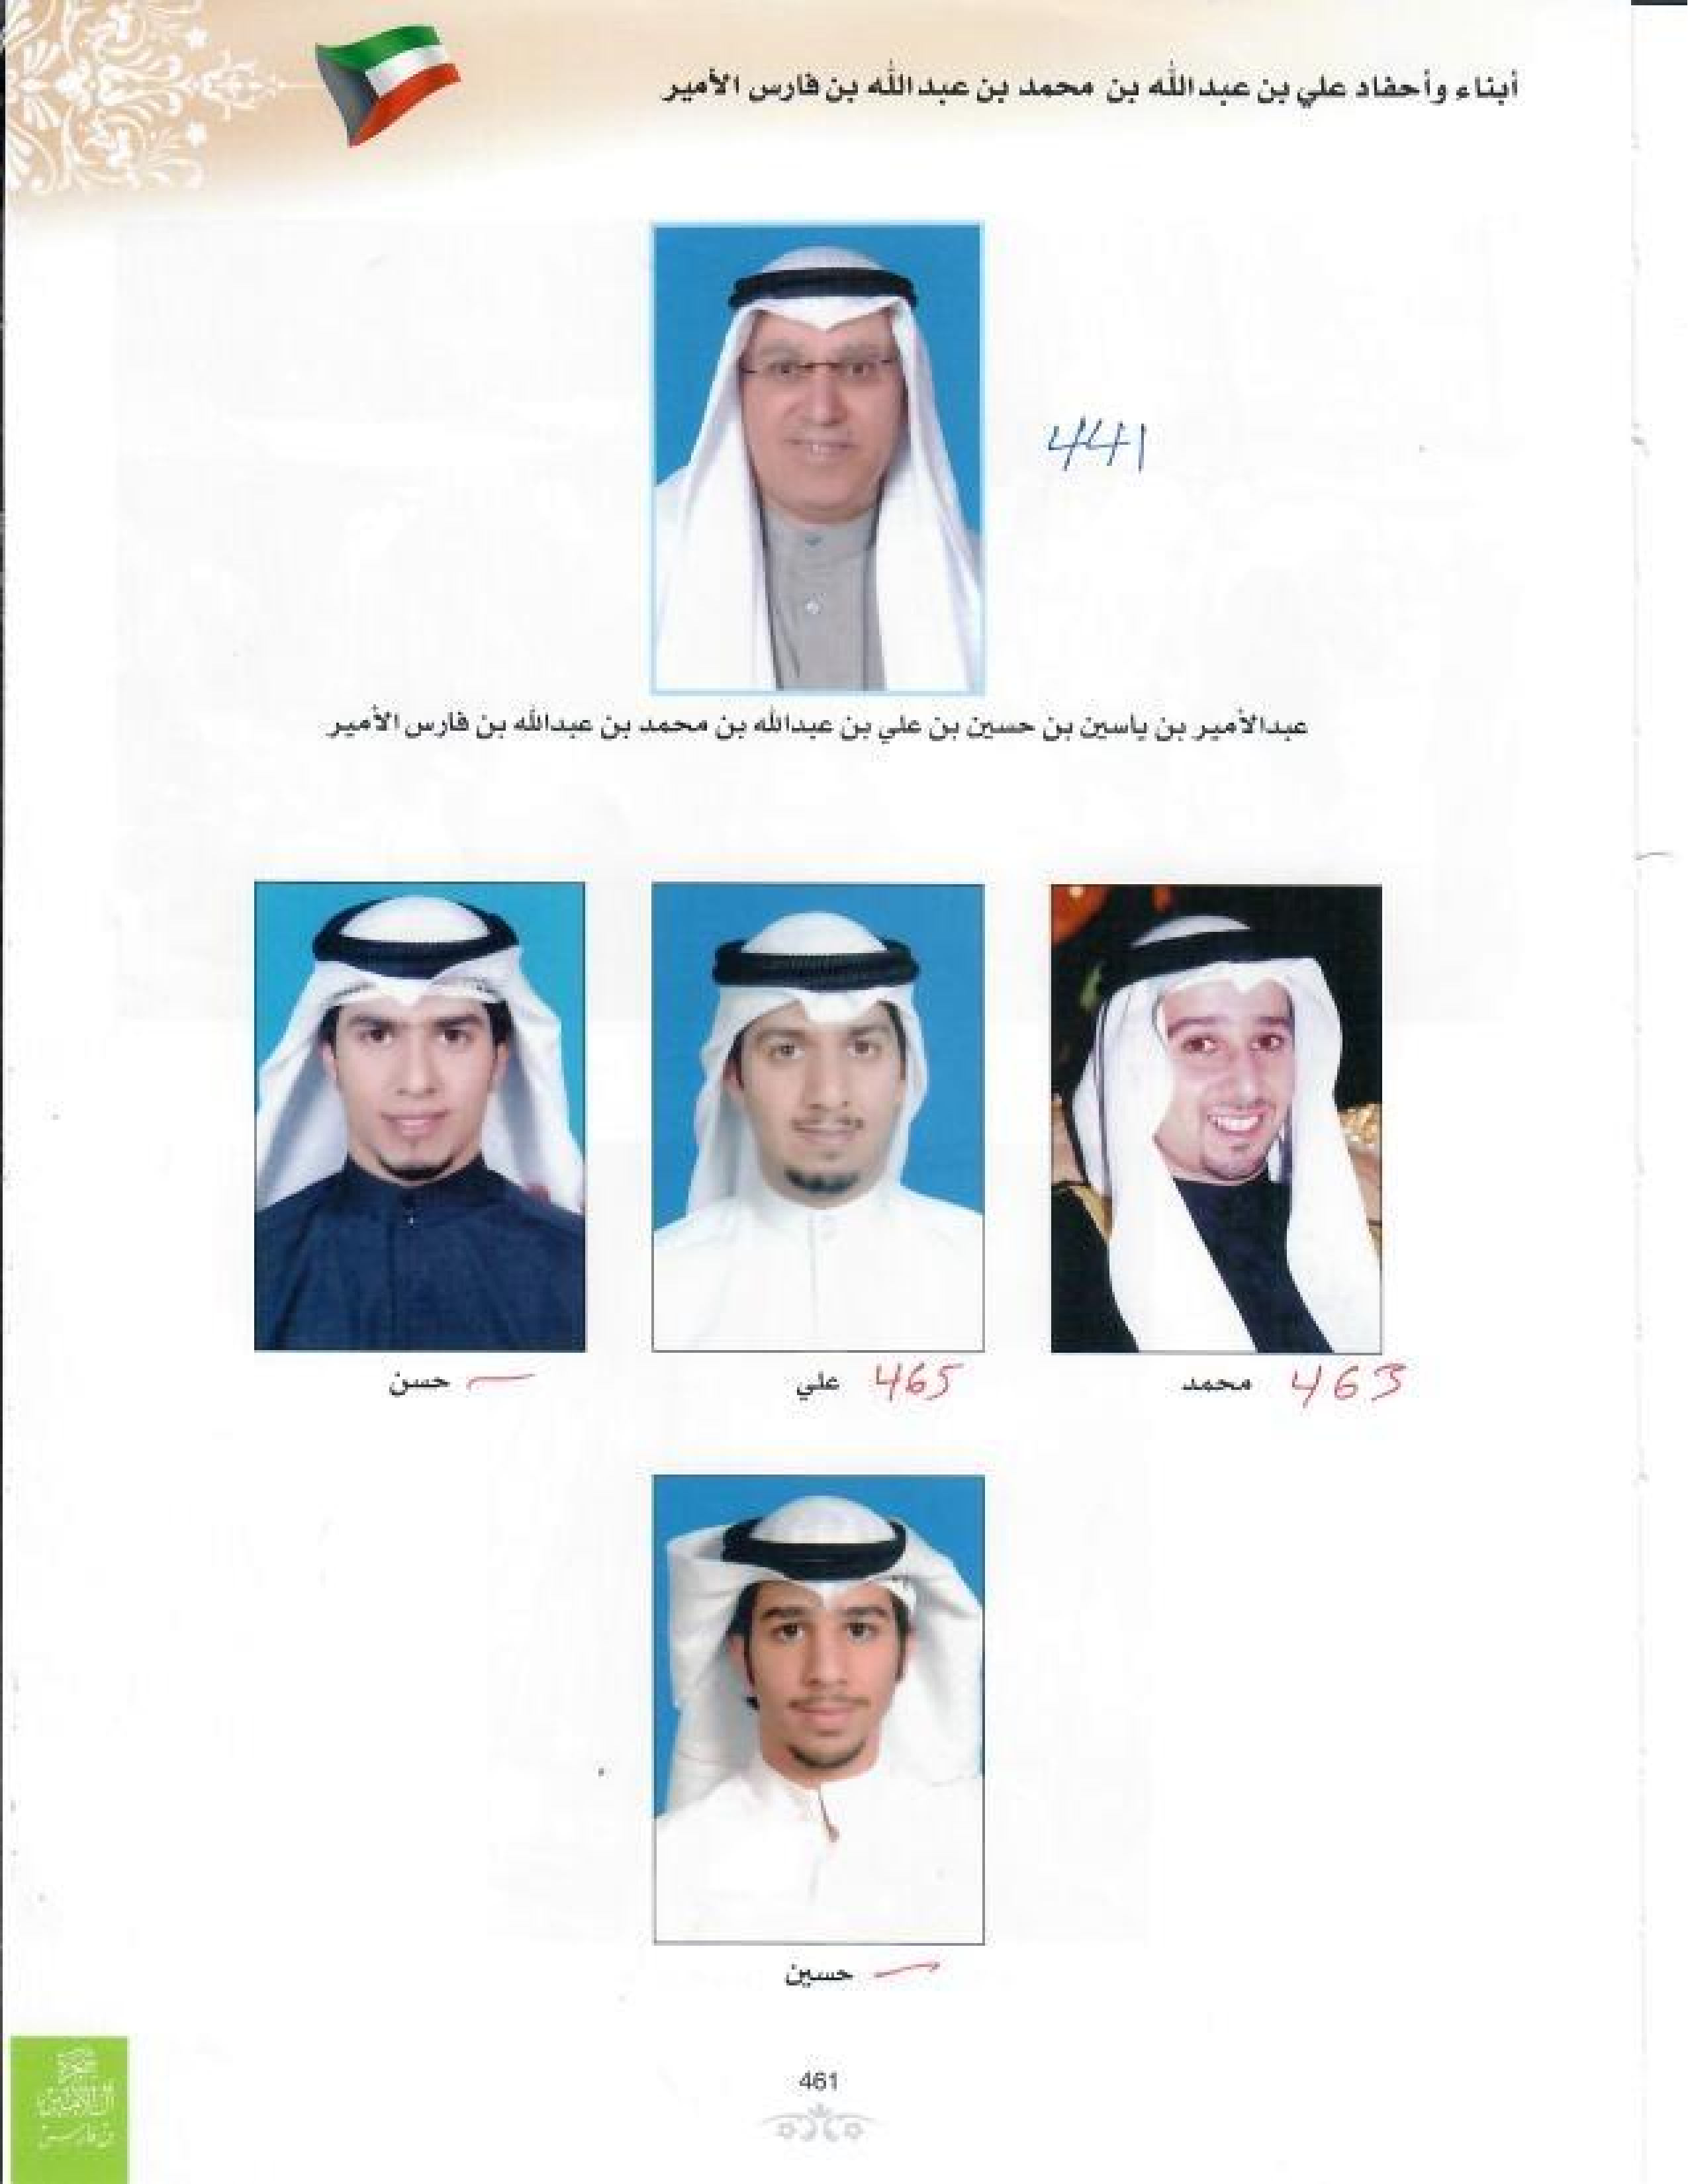 أبناء وأحفاد علي بن عبدالله بن محمد بن عبدالله بن فارس الأمير
441
عبدالأمير بن ياسين بن حسين بن علي بن عبدالله بن محمد بن عبدالله بن فارس الأمير
463 محمد
465 علي
حسن
حسين
461